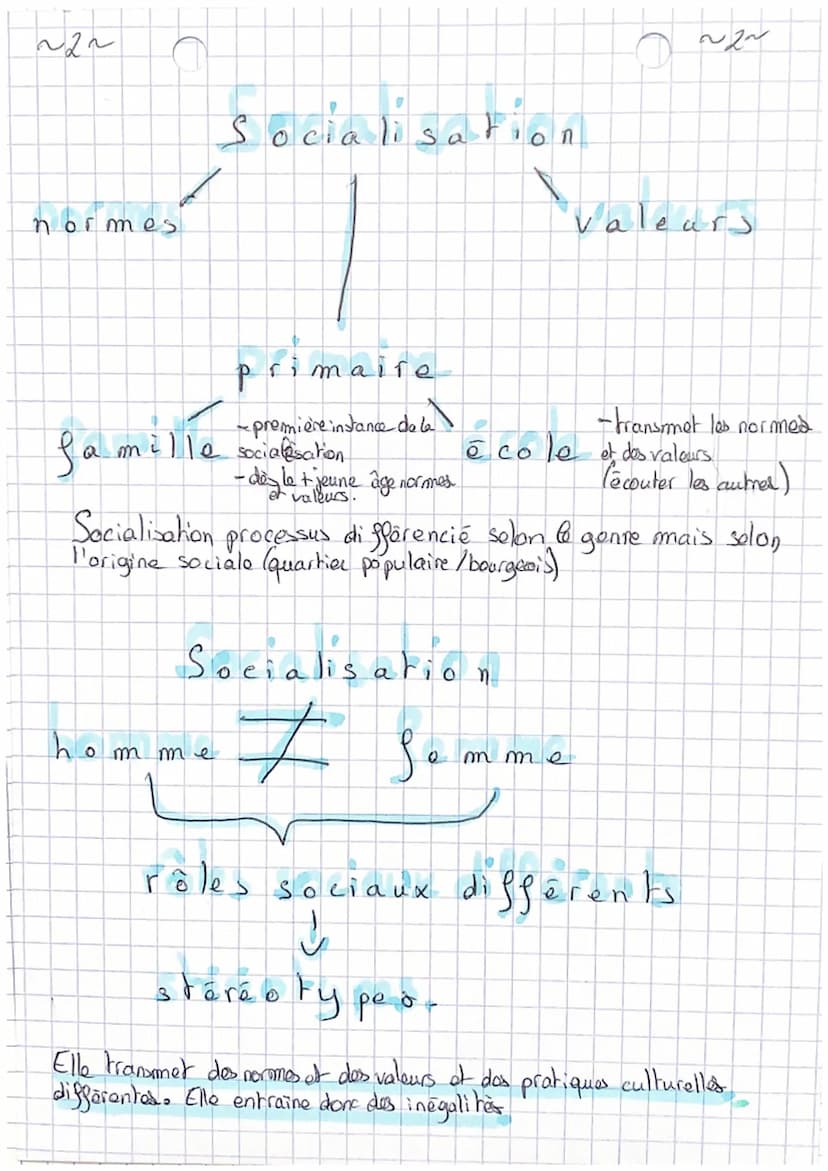 ~2~ ~2~
Socialisation
normes valeurs
primaire
famille
- première instance de la
socialisation
- dès le + jeune âge normes
et valeurs.
école
- transmet les normes
et des valeurs
(écouter les autres)
Socialisation processus différencié selon le genre mais selon
l'origine sociale (quartier populaire/bourgeois)
Socialisation
homme ≠ femme
rôles sociaux différents
↓
stéréotypes.
Elle transmet des normes et des valeurs et des pratiques culturelles
différentes. Elle entraine donc des inégalités